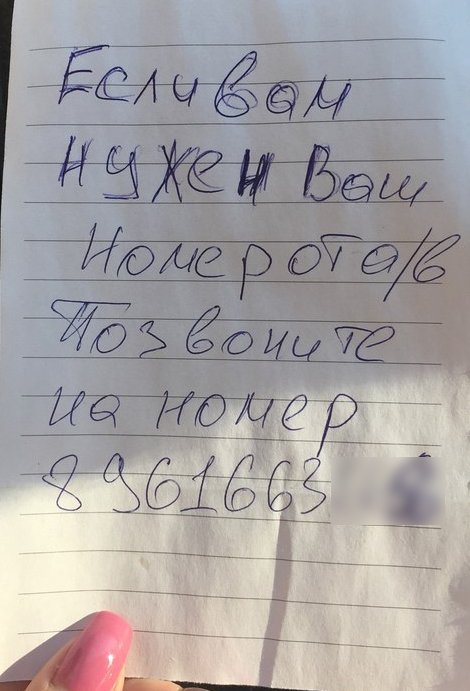 Если вам
нужен Ваш
Номер от а/в
Позвоните
на номер
8961663